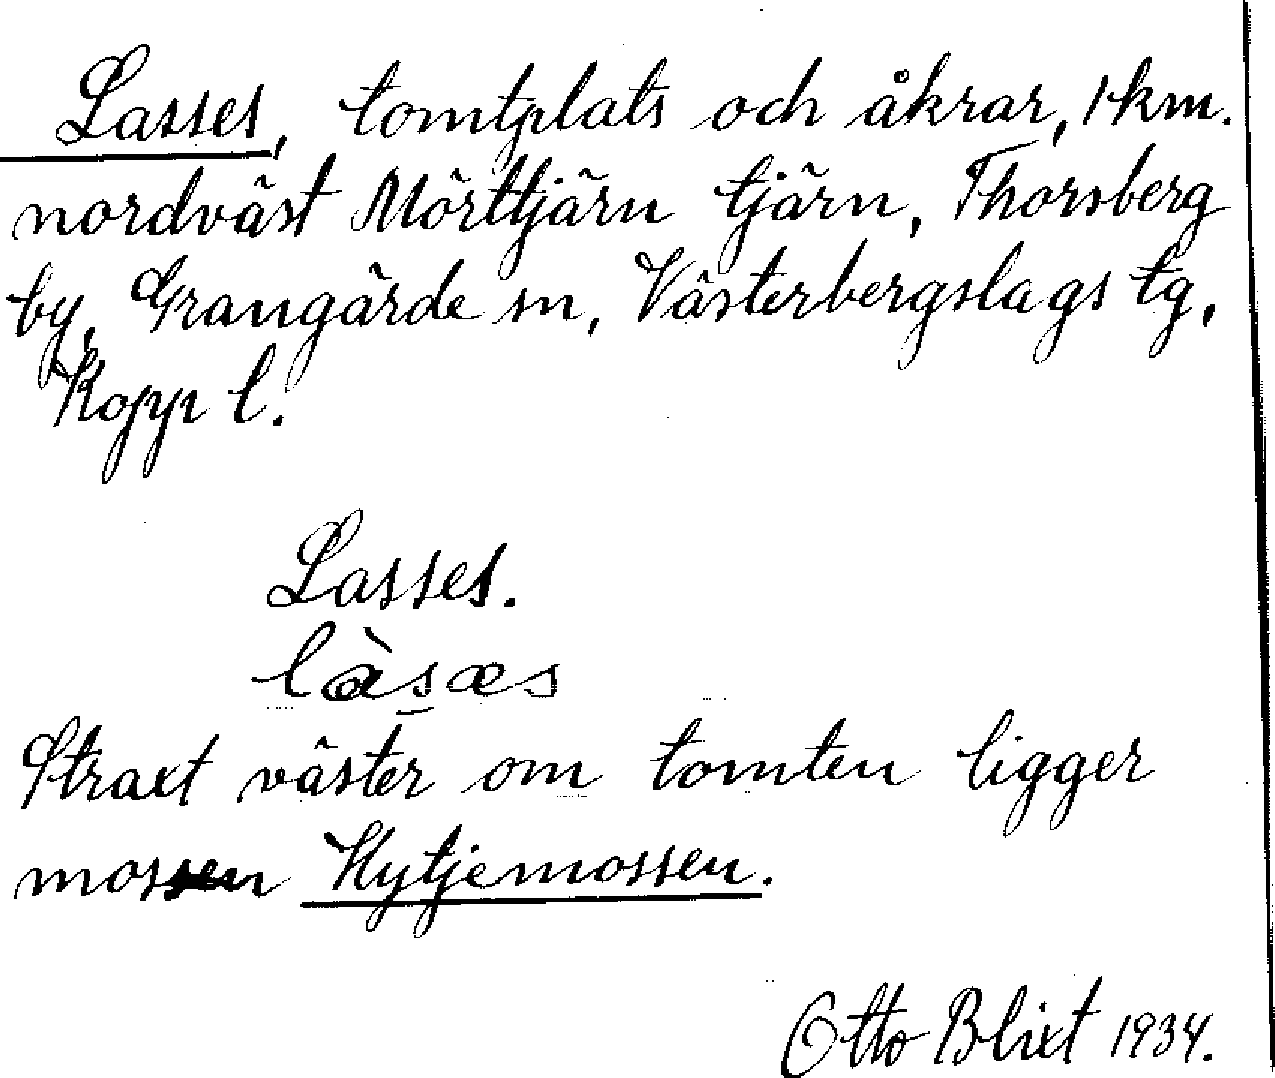 Lasses, tomtplats och åkrar, 1 km.
nordväst Mörttjärn tjärn, Thorsberg
by, Grangärde sn, Västerbergslags tg,
Kopp l.
Lasses.
làsæs
Straxt väster om tomten ligger
mossen Kytjemossen.
Otto Blixt 1934.